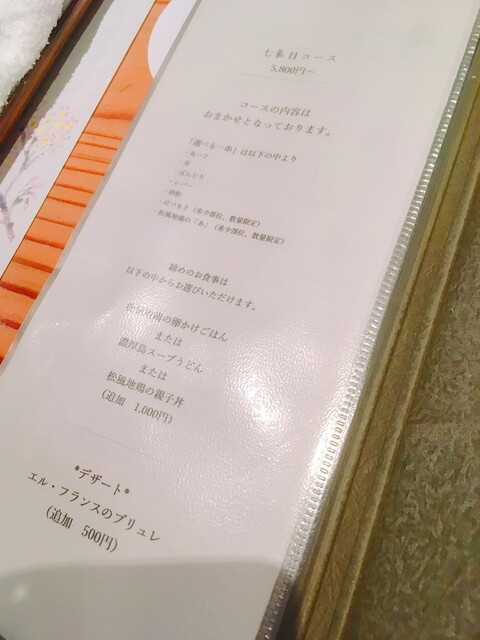 コース
5,800円～
コースの内容は
おまかせとなっております。
「選べる一串」は以下の中より
・レバー
・砂肝
・はつもと（希少部位、数量限定）
・松風地鶏の「あ」（希少部位、数量限定）
締めのお食事は
以下の中からお選びいただけます。
の卵かけごはん
または
濃厚鳥スープうどん
または
松風地鶏の親子丼
(追加 1,000円)
*デザート*
エル・フランスのブリュレ
(追加 500円)